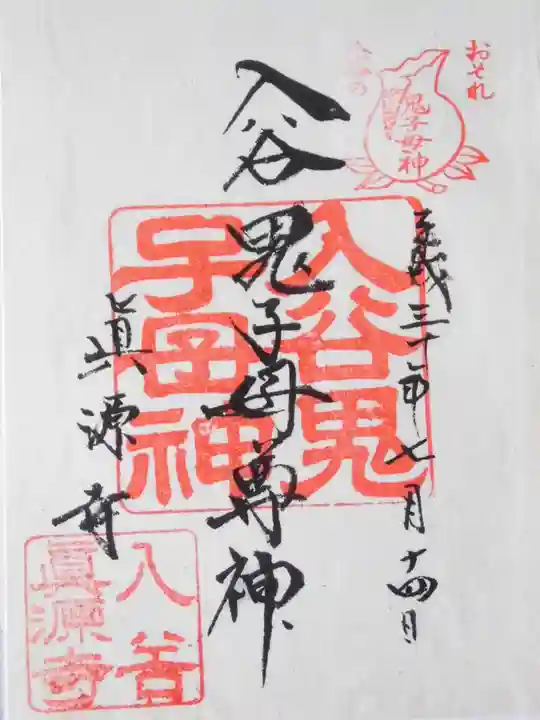 おそれ
入谷の
鬼子母神
平成三十年七月十四日
入谷鬼子母尊神
眞源寺
入谷鬼
子母神
入谷
眞源寺